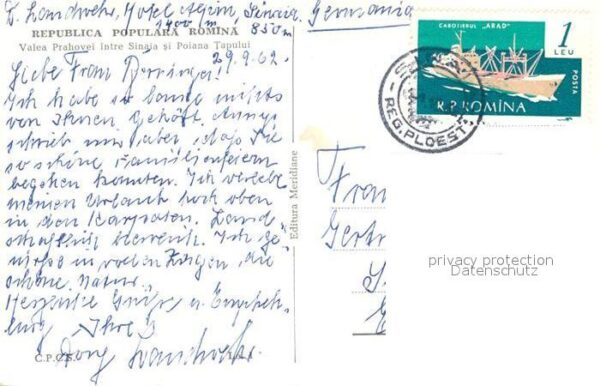 Landwehr, Hotel Alpin, Sinaia, Germania
1400 m 850 m
REPUBLICA POPULARA ROMINA
Valea Prahovei între Sinaia și Poiana Țapului
29.9.62.
Liebe Frau
Ich habe so lange nichts
von Ihnen gehört.
schrieb mir aber, daß Sie
so schöne Familienfeiern
begehen konnten. Ich verlebe
meinen Urlaub hoch oben
in den Karpaten. Land-
schaftlich herrlich. Ich ge-
nieße in vollen Zügen die
schöne Natur.
Herzliche Grüße u. Empfeh-
lung Ihre
Landwehr.
C.P.C.S.
Editura Meridiane
CARGOTIERUL „ARAD"
1
LEU
POSTA
R.P.ROMINA
REG. PLOEȘTI
Frau
Gertr
privacy protection
Datenschutz